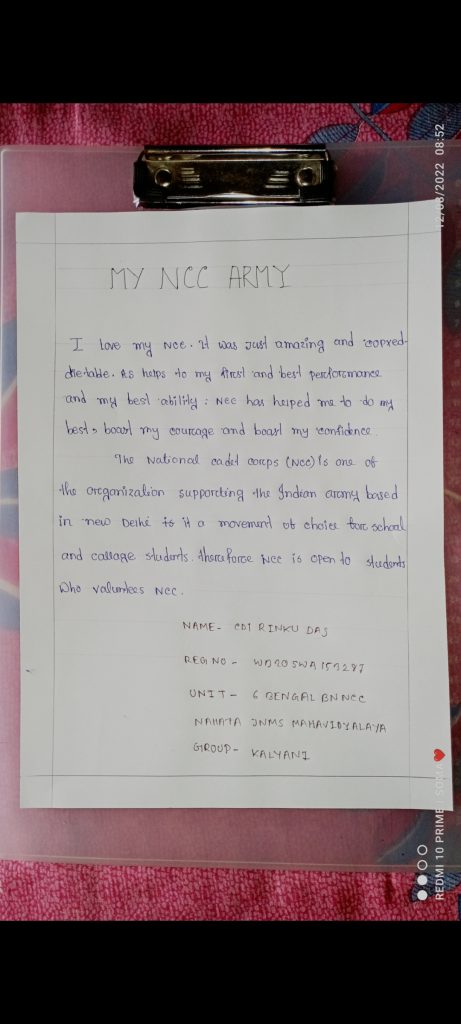 MY NCC ARMY
I love my NCC. It was just amazing and
dictable. As helps to my first and best performance
and my best ability: NCC has helped me to do my
best, boast my courage and boast my confidence.
The National cadet corps (NCC) Is one of
the organization supporting the Indian army based
in new Delhi is it a movement of choice for school
and callage students. therefore NCC is open to students
Who valuntees NCC.
NAME- CDT RINKU DAS
REG NO - WB20SWA153287
UNIT- 6 BENGAL BN NCC
NAHATA JNMS MAHAVIDYALAYA
GROUP- KALYANI
12/08/2022 08:52
REDMI 10 PRIME | SONIA